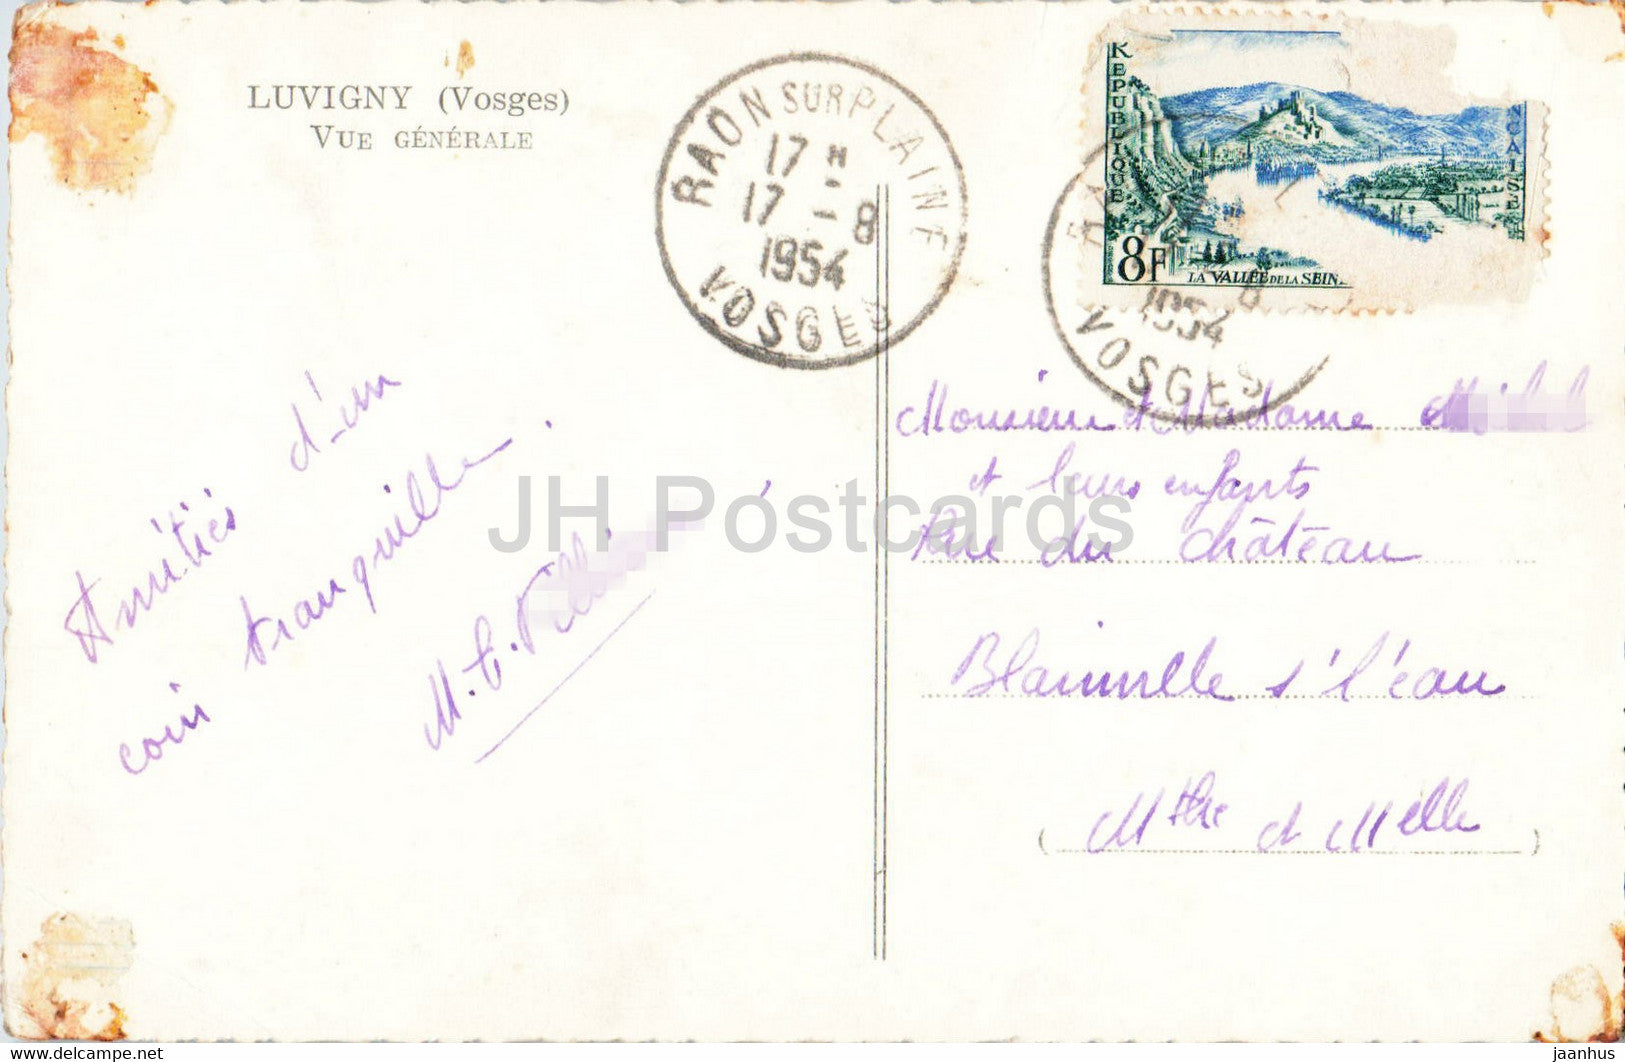 LUVIGNY (Vosges)
VUE GÉNÉRALE
RAON SUR PLAINE
17 H
17 - 8
1954
VOSGES
REPUBLIQUE
8F
LA VALLÉE DE LA SEIN
1954
VOSGES
Amitiés d'un
coin tranquille.
M. C.
Monsieur et Madame
et leurs enfants
Rue du Château
Blainville s' l'eau
(Mthe et Mlle)
JH Postcards
jaanhus @ delcampe.net